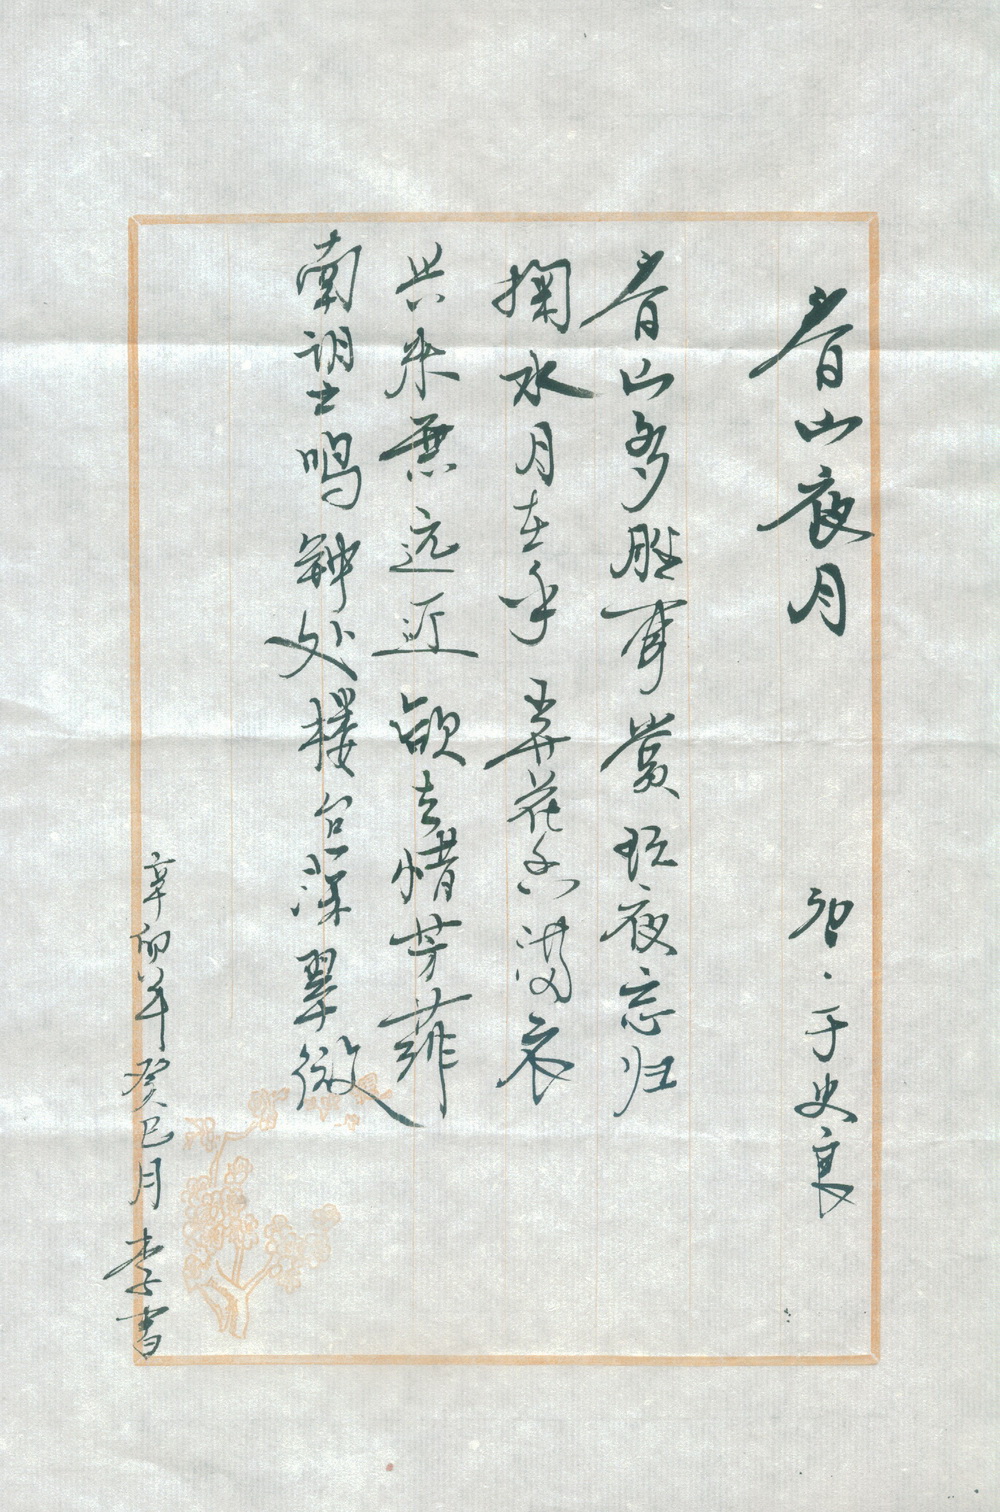 春山夜月 唐·于史良
春山多胜事赏玩夜忘归
掬水月在手弄花香满衣
兴来無远近欲去惜芳菲
南望鸣钟处楼台深翠微
辛卯年癸巳月李书